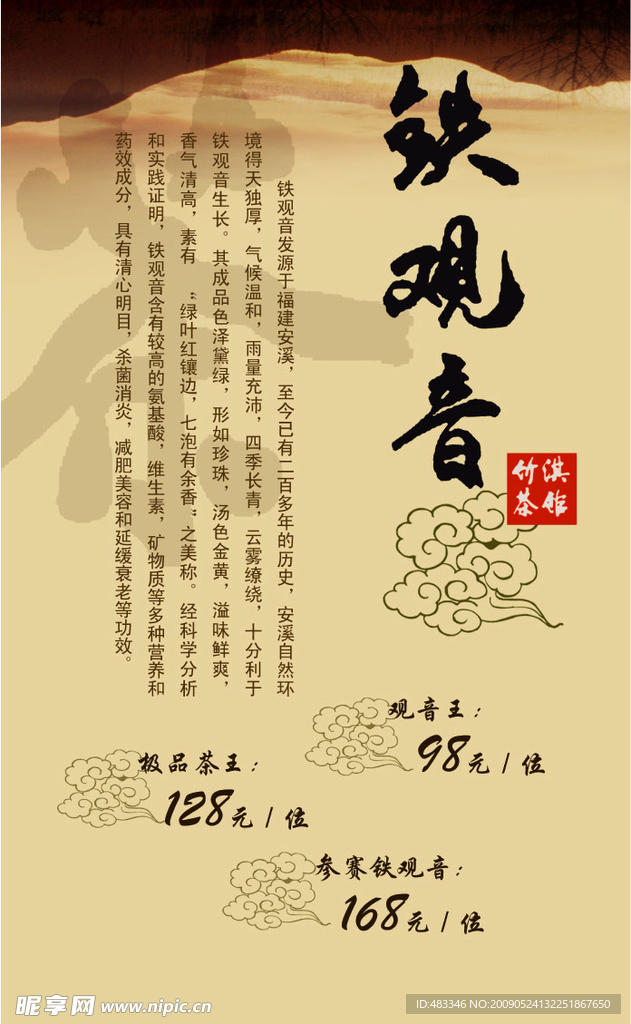 铁观音
淇竹茶馆
铁观音发源于福建安溪，至今已有二百多年的历史，安溪自然环
境得天独厚，气候温和，雨量充沛，四季长青，云雾缭绕，十分利于
铁观音生长。其成品色泽黛绿，形如珍珠，汤色金黄，溢味鲜爽，
香气清高，素有“绿叶红镶边，七泡有余香”之美称。经科学分析
和实践证明，铁观音含有较高的氨基酸，维生素，矿物质等多种营养和
药效成分，具有清心明目，杀菌消炎，减肥美容和延缓衰老等功效。
观音王：
98元/位
极品茶王：
128元/位
参赛铁观音：
168元/位
昵享网 www.nipic.cn
ID:483346 NO:20090524132251867650